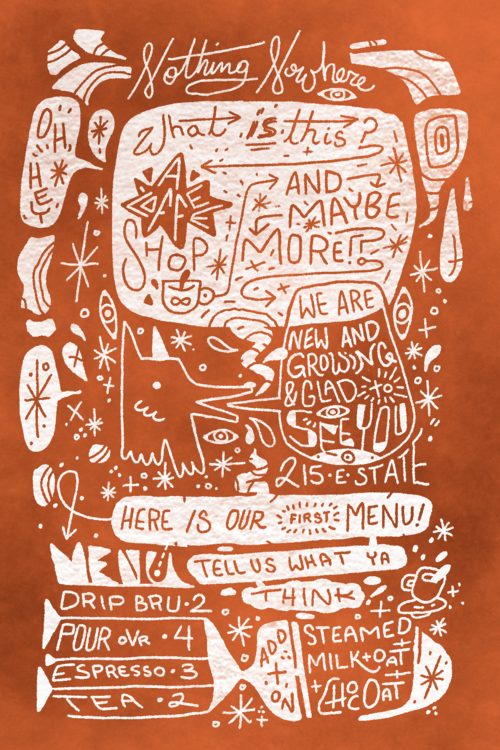 Nothing Nowhere
OH,
HEY
What is this?
A
CAFE
SHOP
AND
MAYBE
MORE!?
WE ARE
NEW AND
GROWING
& GLAD to
SEE YOU
215·E·STATE
HERE IS OUR FIRST MENU!
MENU
TELL US WHAT YA
THINK
DRIP BRU·2
POUR OVR·4
ESPRESSO·3
TEA·2
ADD
+
ON
STEAMED
MILK+OAT
+ChocOat